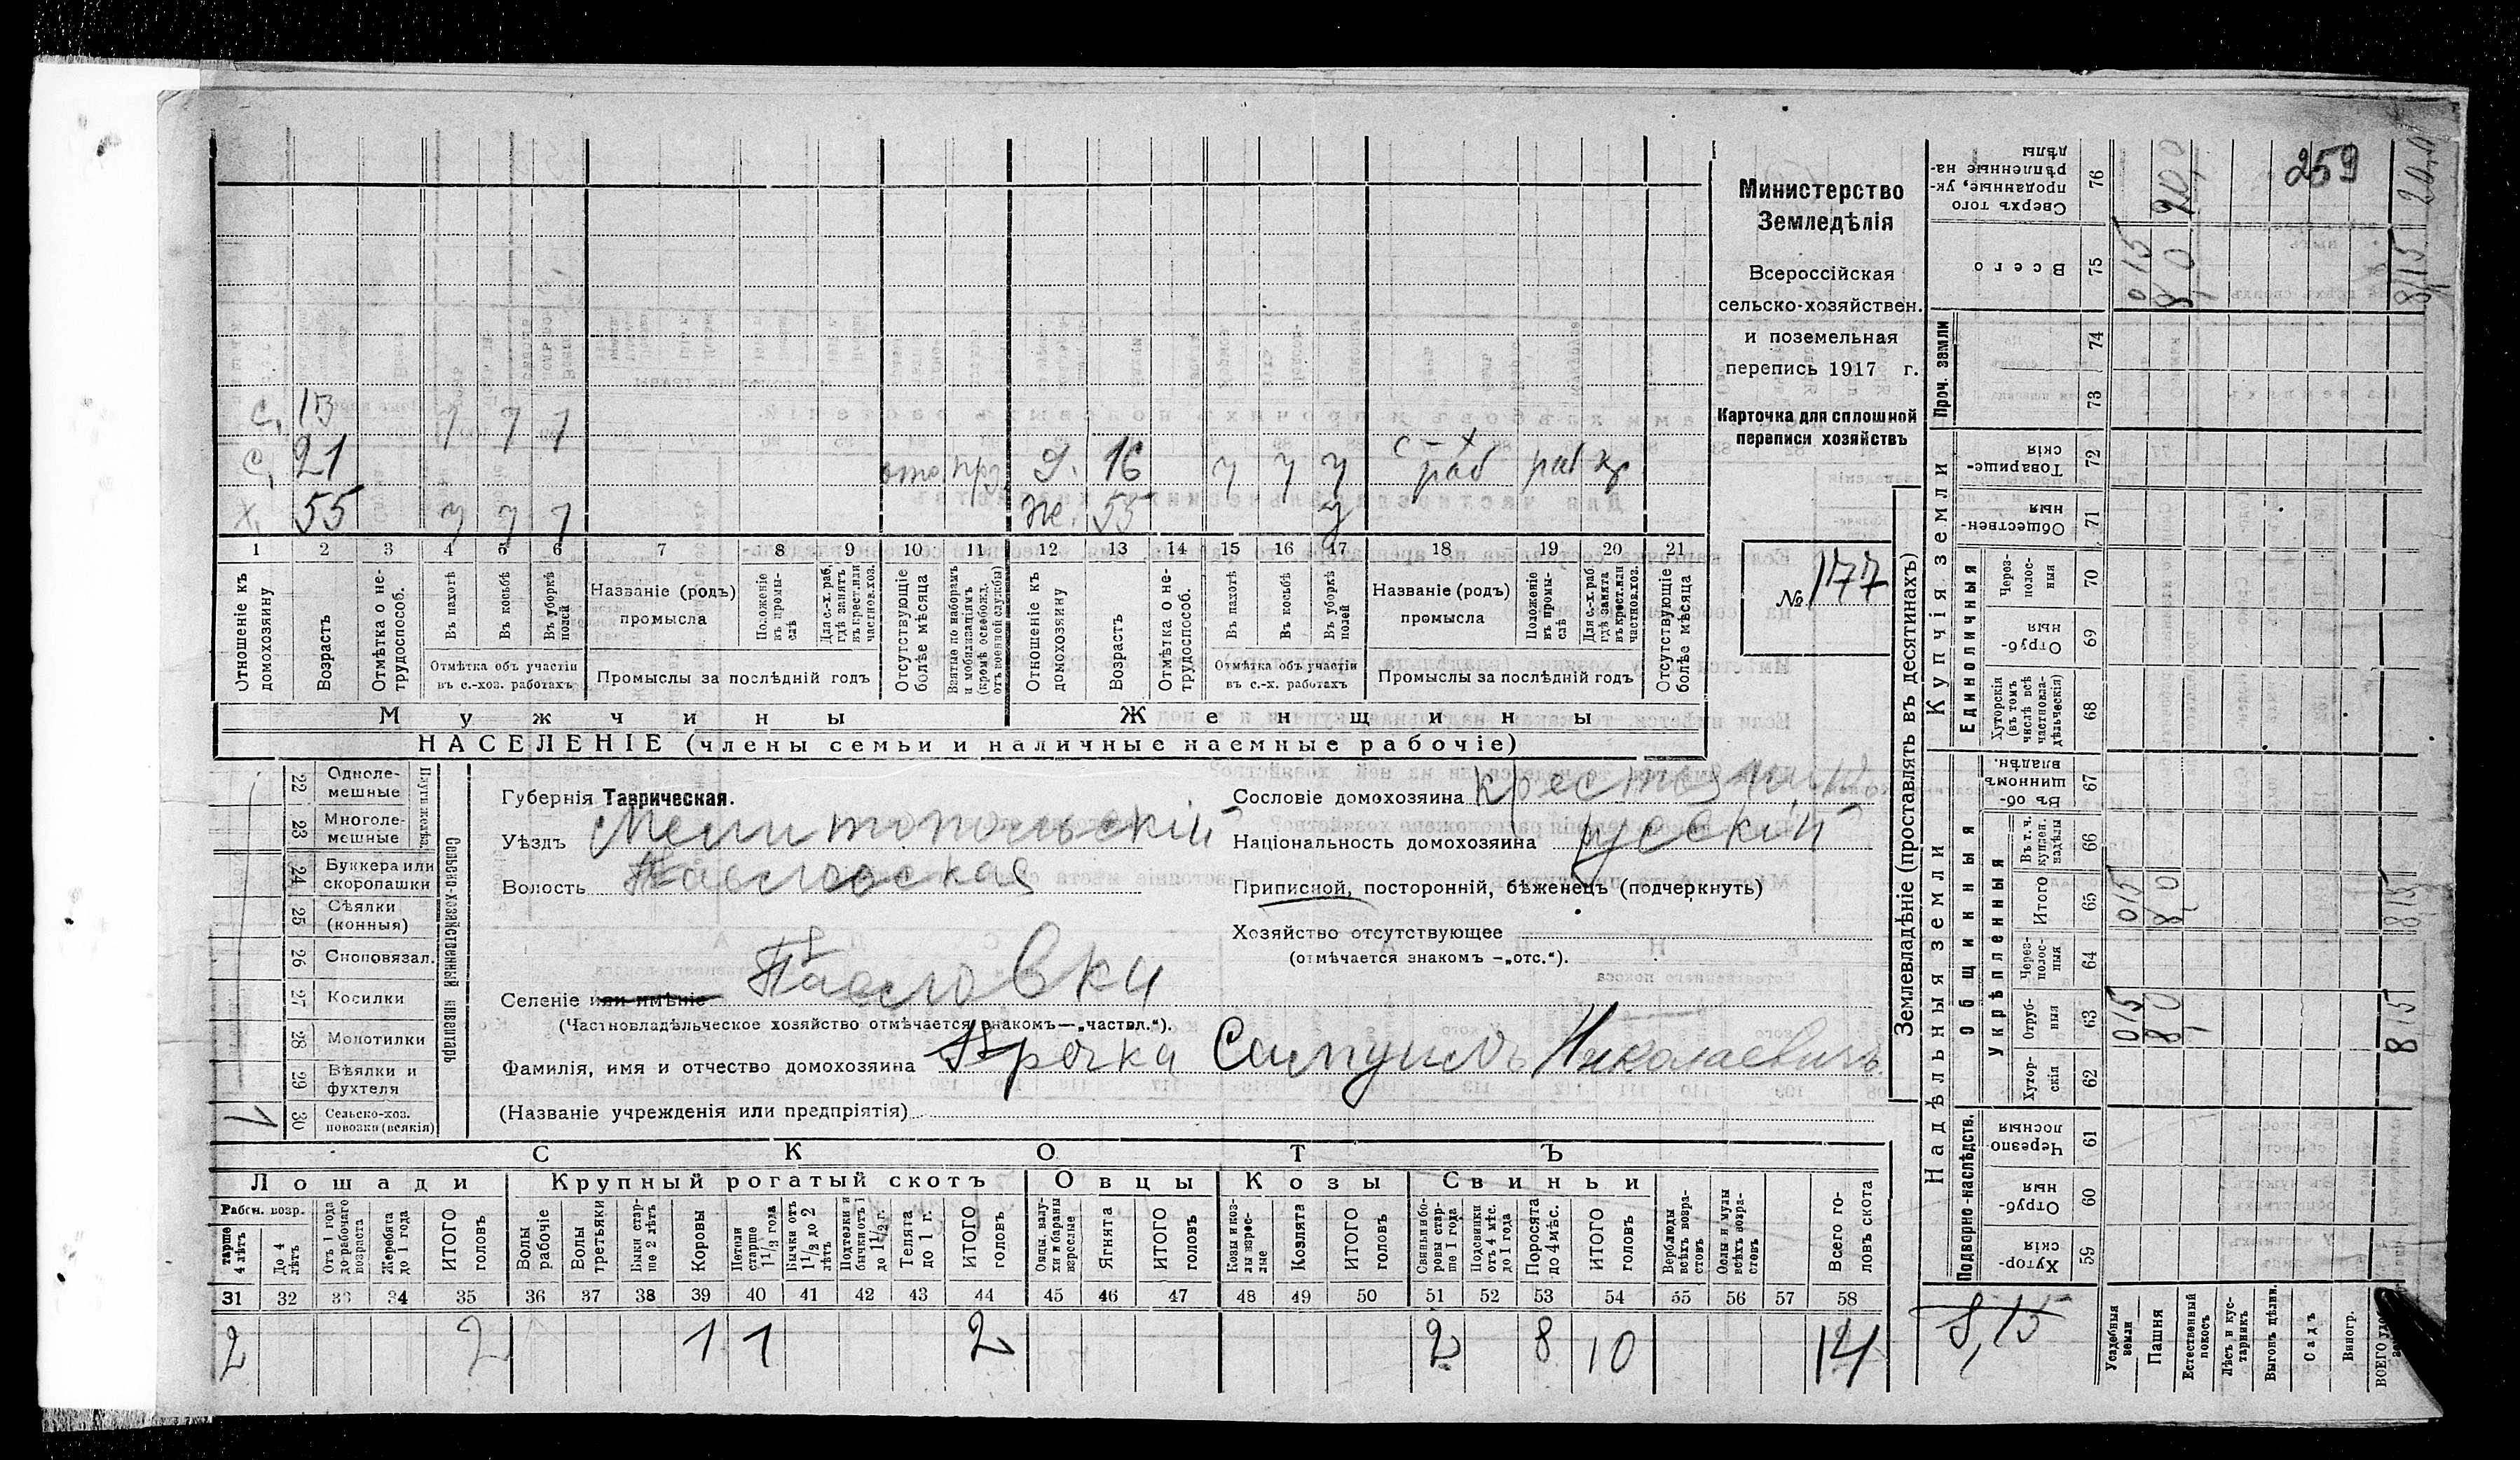 259
Министерство
Земледѣлія
Всероссійская
сельско-хозяйствен.
и поземельная
перепись 1917 г.
Карточка для сплошной
переписи хозяйствъ
№ 177
с. 13 7 7 7
с. 21 отс. 16 у у у с-х раб раб кр
х. 55 у 7 7 же. 55 у
1 2 3 4 5 6 7 8 9 10 11 12 13 14 15 16 17 18 19 20 21
Отношеніе къ домохозяину
Возрастъ
Отмѣтка о не-трудоспособ.
Въ пахотѣ
Въ косьбѣ
Въ уборкѣ полей
Отмѣтка объ участіи въ с.-хоз. работахъ
Названіе (родъ) промысла
Положеніе въ промы-слѣ
Для с.-х. раб. гдѣ занятъ въ крест. или частновл. хоз.
Промыслы за послѣдній годъ
Отсутствующіе болѣе мѣсяца
Взятые по наборамъ и мобилизаціямъ (кромѣ освобожд. отъ военной службы)
Отношеніе къ домохозяину
Возрастъ
Отмѣтка о не-трудоспособ.
Въ пахотѣ
Въ косьбѣ
Въ уборкѣ полей
Отмѣтка объ участіи въ с.-х. работахъ
Названіе (родъ) промысла
Положеніе въ промы-слѣ
Для с.-х. раб. гдѣ занята въ крест. или частновл. хоз.
Промыслы за послѣдній годъ
Отсутствующіе болѣе мѣсяца
Мужчины Женщины
НАСЕЛЕНІЕ (члены семьи и наличные наемные рабочіе)
Сельско-хозяйственный инвентарь
22 Одноле-мешные
23 Многоле-мешные
24 Буккера или скоропашки
25 Сѣялки (конныя)
26 Сноповязал.
27 Косилки
28 Молотилки
29 Вѣялки и фухтеля
30 Сельско-хоз. повозки (всякія)
Губернія Таврическая.
Уѣздъ Мелитопольскій
Волость Павловская
Селеніе или имѣніе Павловки
(Частновладѣльческое хозяйство отмѣчается знакомъ—„частвл.“).
Фамилія, имя и отчество домохозяина Николаевичъ
(Названіе учрежденія или предпріятія)
Сословіе домохозяина крестьянинъ
Національность домохозяина русскій
Приписной, посторонній, бѣженецъ (подчеркнуть)
Хозяйство отсутствующее
(отмѣчается знакомъ —„отс.“).
СКОТЪ
Лошади Крупный рогатый скотъ Овцы Козы Свиньи
Рабоч. возр.
тарше 4 лѣтъ
До 4 лѣтъ
Отъ 1 года до рабочаго возраста
Жеребята до 1 года
ИТОГО головъ
Волы рабочіе
Волы третьяки
Быки стар-ше 2 лѣтъ
Коровы
Нетели старше 1 1/2 года
Бычки отъ 1 1/2 до 2 лѣтъ
Подтелки и бычки отъ 1 до 1 1/2 г.
Телята до 1 г.
ИТОГО головъ
Овцы, валу-хи и бараны взрослые
Ягнята
ИТОГО головъ
Козы и коз-лы взрос-лые
Козлята
ИТОГО головъ
Свиньи и бо-ровы стар-ше 1 года
Подсвинки отъ 4 мѣс. до 1 года
Поросята до 4 мѣс.
ИТОГО головъ
Верблюды всѣхъ возра-стовъ
Ослы и мулы всѣхъ возра-стовъ
Всего го-ловъ скота
31 32 33 34 35 36 37 38 39 40 41 42 43 44 45 46 47 48 49 50 51 52 53 54 55 56 57 58
2 2 1 1 2 2 8 10 14
Землевладѣніе (проставлять въ десятинахъ)
Надѣльныя земли
Купчія земли
Проч. земли
Подворно-наслѣдств.
Общинныя
Укрѣпленныя
Единоличныя
Сверхъ того проданные, ук-рѣпленные на-дѣлы 76 20,0
Всего 75 015 8,0 8,15
74
73
Товарище-скія 72
Обществен-ныя 71
Через-полос-ныя 70
Отруб-ныя 69
Хуторскія (въ томъ числѣ всѣ частновла-дѣльческія) 68
Въ об-щинномъ владѣн. 67
Въ т. ч. купчен. надѣлы 66
Итого 65 015 8,0 815
Через-полос-ныя 64
Отруб-ныя 63 015 8,0 815
Хутор-скія 62
Черезпо лосныя 61
Отруб-ныя 60
Хутор-скія 59
8,15
Усадебныя земли
Пашня
Естественный покосъ
Лѣсъ и кус-тарникъ
Выгонъ дѣлим.
Садъ
Виногр.